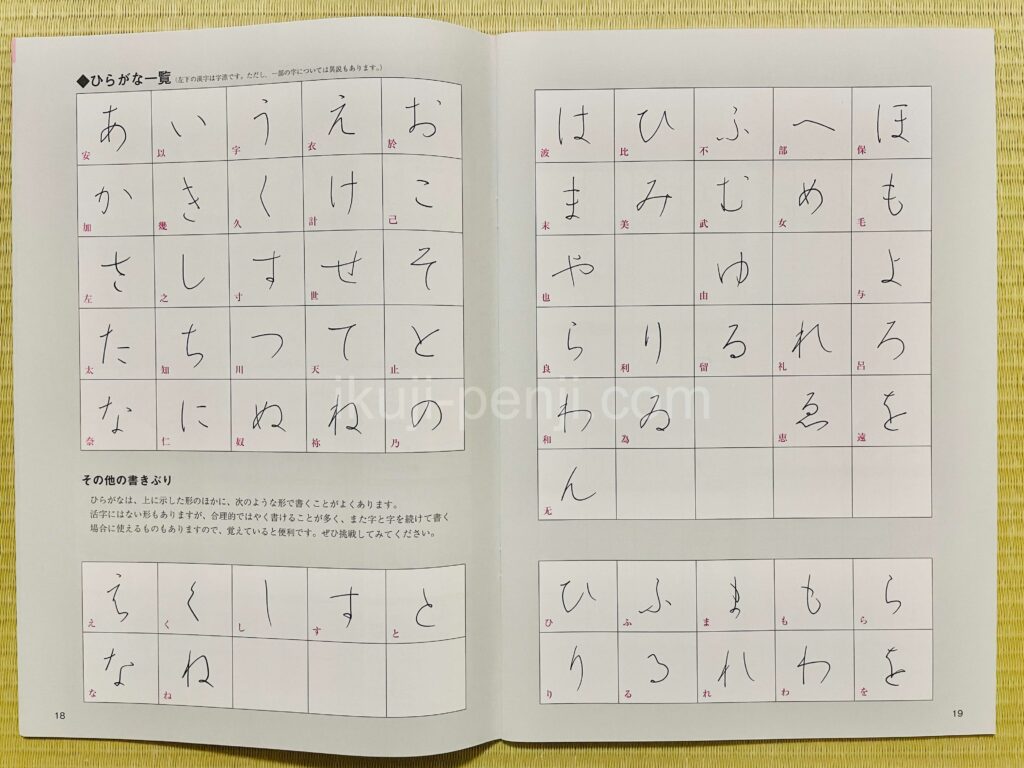 ◆ひらがな一覧(左下の漢字は字源です。ただし、一部の字については異説もあります。)
あ い う え お
安 以 宇 衣 於
か き く け こ
加 幾 久 計 己
さ し す せ そ
左 之 寸 世
た ち つ て と
太 知 川 天 止
な に ぬ ね の
奈 仁 奴 祢 乃
その他の書きぶり
ひらがなは、上に示した形のほかに、次のような形で書くことがよくあります。
活字にはない形もありますが、合理的ではやく書けることが多く、また字と字を続けて書く
場合に使えるものもありますので、覚えていると便利です。ぜひ挑戦してみてください。
え く し す と
え く し す と
な ね
な ね
18
は ひ ふ へ ほ
波 比 不 部 保
ま み む め も
末 美 武 女 毛
や ゆ よ
也 由 与
ら り る れ ろ
良 利 留 礼 呂
わ ゐ ゑ を
和 為 恵 遠
ん
无
ひ ふ ま も ら
ひ ふ ま も ら
り る れ わ を
り る れ わ を
19
ikuji-penji.com